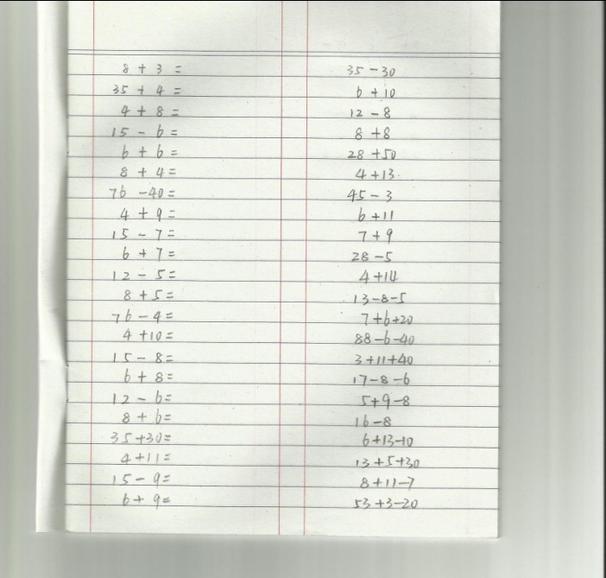 8 + 3 =
35 + 4 =
4 + 8 =
15 - 6 =
6 + 6 =
8 + 4 =
76 - 40 =
4 + 9 =
15 - 7 =
6 + 7 =
12 - 5 =
8 + 5 =
76 - 4 =
4 + 10 =
15 - 8 =
6 + 8 =
12 - 6 =
8 + 6 =
35 + 30 =
4 + 11 =
15 - 9 =
6 + 9 =
35 - 30
6 + 10
12 - 8
8 + 8
28 + 50
4 + 13
45 - 3
6 + 11
7 + 9
28 - 5
4 + 14
13 - 8 - 5
7 + 6 + 20
88 - 6 - 40
3 + 11 + 40
17 - 8 - 6
5 + 9 - 8
16 - 8
6 + 13 - 10
13 + 5 + 30
8 + 11 - 7
53 + 3 - 20